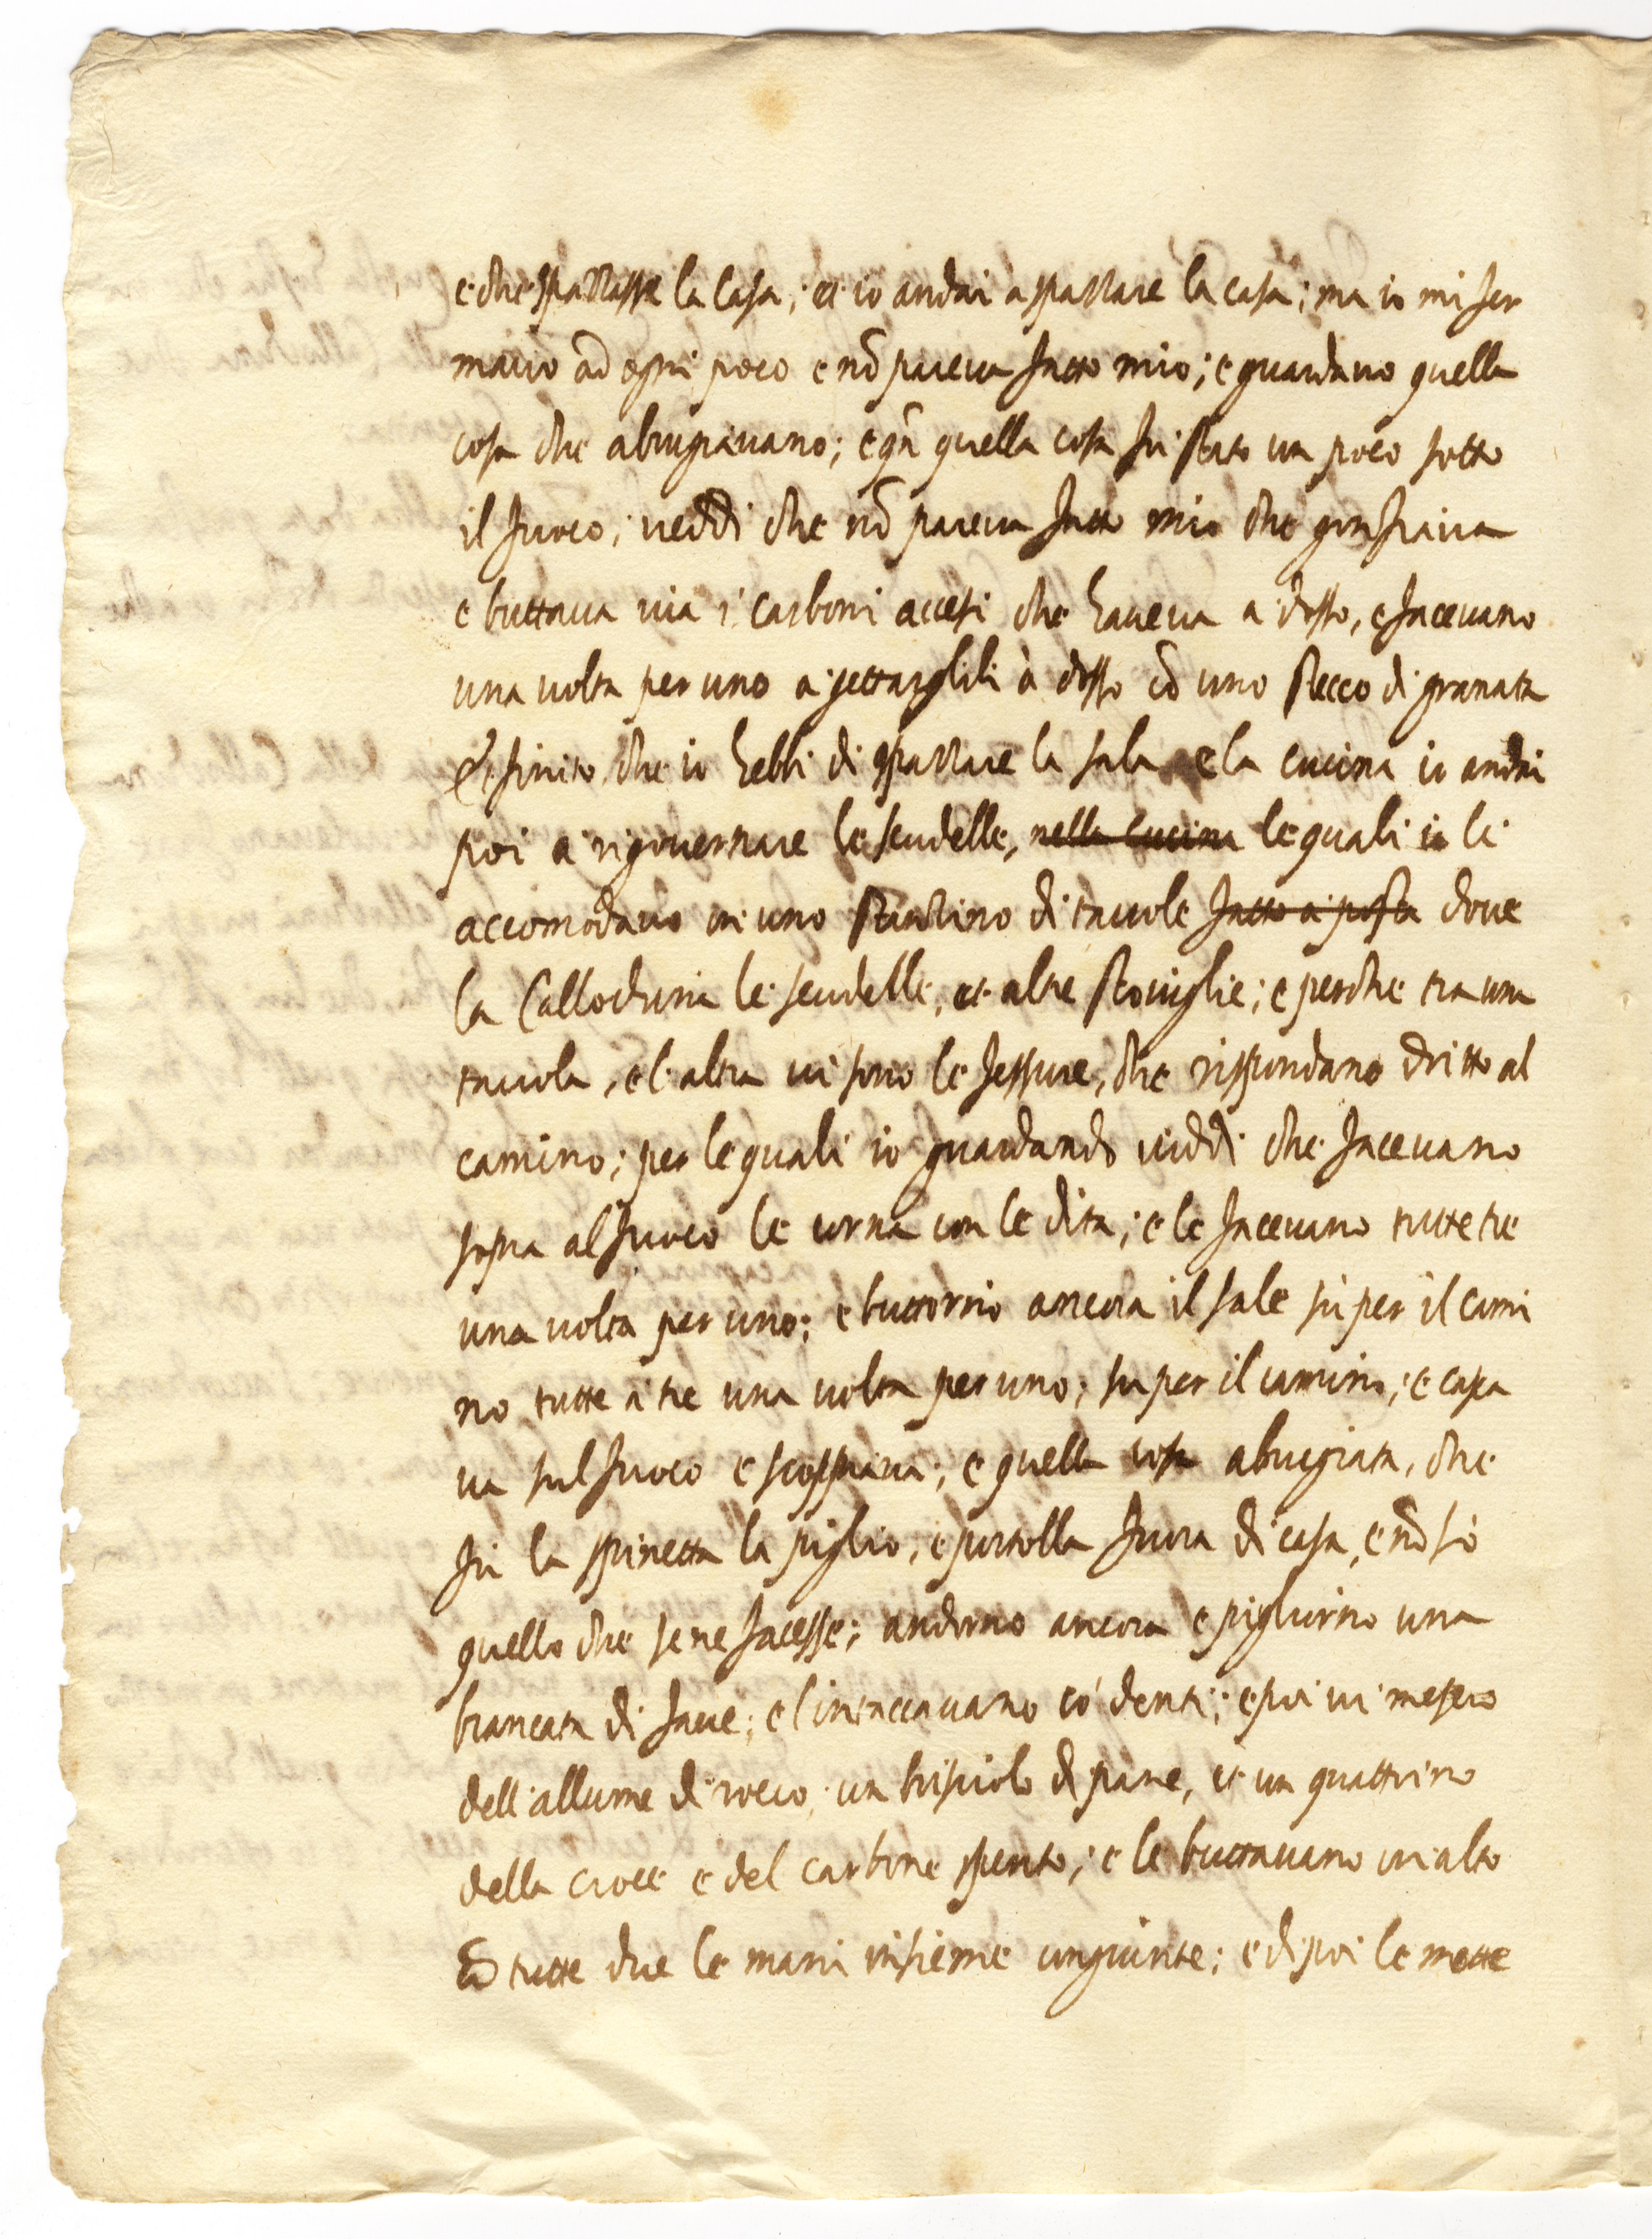 e che spazzasse la Casa; et io andai à spazzare la casa; ma io mi fer
mavo ad ogni poco e nõ pareva fatto mio; e guardavo quella
cosa che abrugiavano; e qñ quella cosa fu stato un poco sotto
il fuoco; veddi che nõ pareva fatto mio che gonfiava
e buttava via i carboni accesi che haveva a dosso, e facevano
una volta per uno a gettarglili à dosso cõ uno stecco di granata
Et finito che io hebbi di spazzare la sala e la cucina io andai
poi a rigovernare le scudelle, nella cucina le quali io le
accomodavo in uno stanzino di tavole fatto a posta dove
la Callodinia le scudelle, et altre stoviglie; e perche tra una
tavola, e l'altra vi sono le fessure, che rispondano dritto al
camino; per le quali io guardando viddi che facevano
sopra al fuoco le corna con le dita; e le facevano tutte tre
una volta per uno; e buttorno ancora il sale sù per il cami
no tutte a tre una volta per uno; su per il camino; e casca
va sul fuoco e scoppiava; e quella cosa abrugiata, che
fu la spinetta la pigliò, e portolla fuora di casa, e nõ sò
quello che se ne facesse; andorno ancora e pigliorno una
brancata di fave; e l'intaccavano cò denti; e poi vi messero
dell'allume di roco, un briciolo di pane, et un quattrino
della croce e del carbone spento; e le buttavano in alto
cõ tutte due le mani insieme congiunte; e di poi le mette